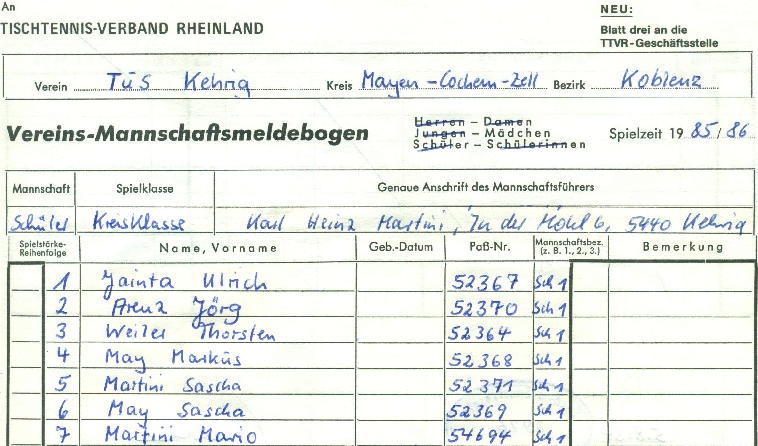 An
NEU:
TISCHTENNIS-VERBAND RHEINLAND
Blatt drei an die
TTVR-Geschäftsstelle
Verein TUS Kehrig Kreis Mayen-Cochem-Zell Bezirk Koblenz
Vereins-Mannschaftsmeldebogen
Herren – Damen
Jungen – Mädchen
Schüler – Schülerinnen
Spielzeit 19 85/86
Mannschaft Spielklasse Genaue Anschrift des Mannschaftsführers
Schüler Kreisklasse Karl Heinz Martini, In der Höhl 6, 5440 Kehrig
Spielstärke-Reihenfolge Name, Vorname Geb.-Datum Paß-Nr. Mannschaftsbez. (z. B. 1., 2., 3.) Bemerkung
1 Jainta Ulrich 52367 Sch 1
2 Arenz Jörg 52370 Sch 1
3 Weiler Thorsten 52364 Sch 1
4 May Markus 52368 Sch 1
5 Martini Sascha 52371 Sch 1
6 May Sascha 52369 Sch 1
7 Martini Mario 54694 Sch 1